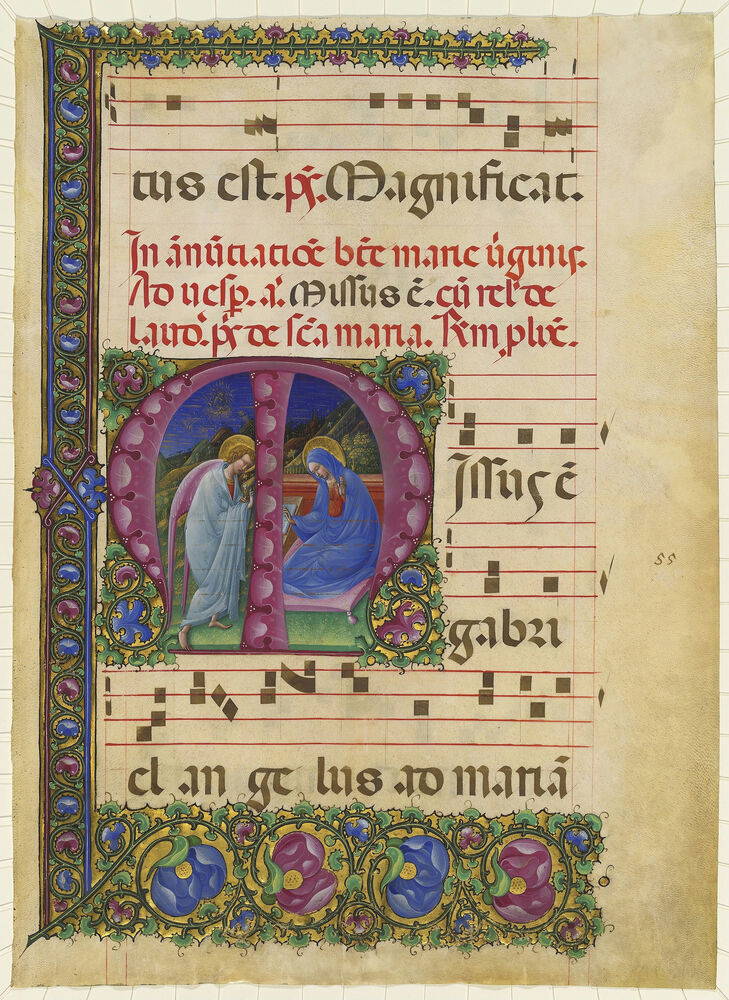 tus est. p̄s. Magnificat.
In ānūtiatiōe btē marie ūginis.
Ad uesp̄. a. Missus ē. cū rel' de
laud. p̄s de scā maria.
Missus ē
55
gabri
el an ge lus ad mariā